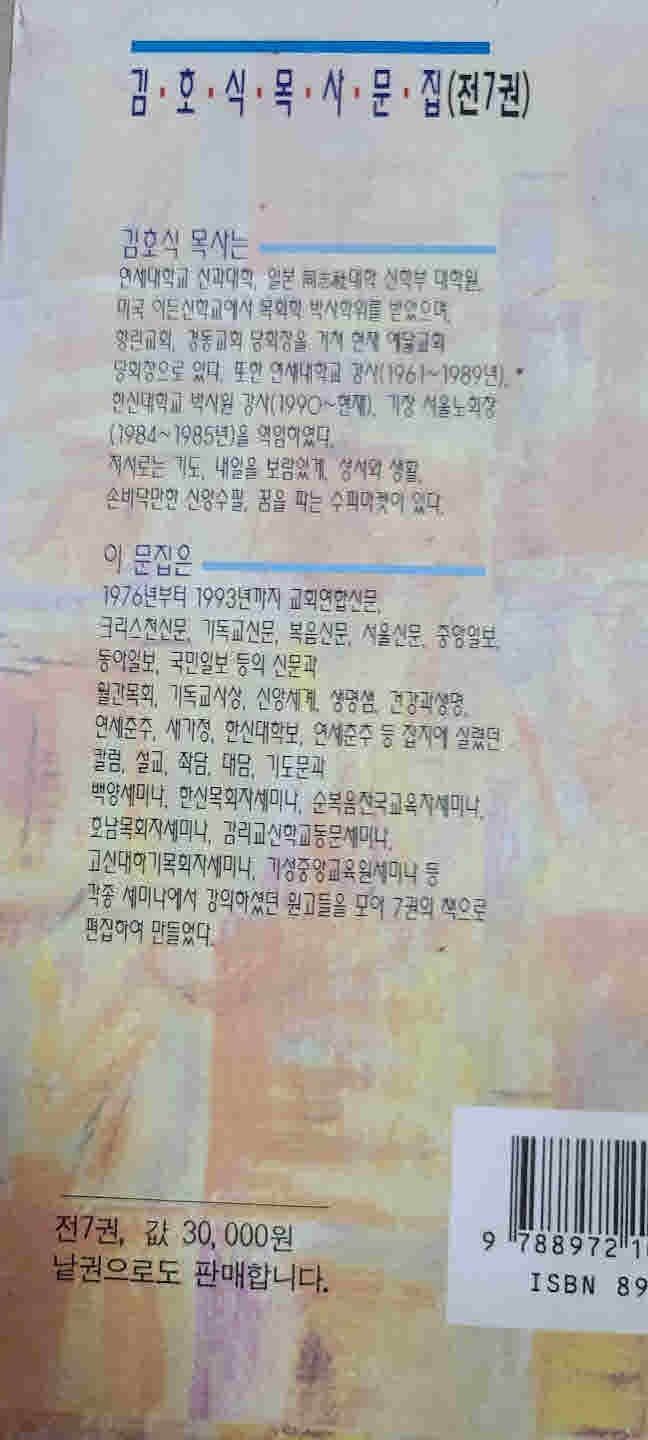 김·호·식·목·사·문·집(전7권)
김호식 목사는
연세대학교 신과대학, 일본 同志社대학 신학부 대학원,
미국 이든신학교에서 목회학 박사학위를 받았으며,
향린교회, 경동교회 당회장을 거쳐 현재 예닮교회
당회장으로 있다. 또한 연세대학교 강사(1961~1989년),
한신대학교 박사원 강사(1990~현재), 기장 서울노회장
(1984~1985년)을 역임하였다.
저서로는 기도, 내일을 보람있게, 성서와 생활,
손바닥만한 신앙수필, 꿈을 파는 수퍼마켓이 있다.
이 문집은
1976년부터 1993년까지 교회연합신문,
크리스천신문, 기독교신문, 복음신문, 서울신문, 중앙일보,
동아일보, 국민일보 등의 신문과
월간목회, 기독교사상, 신앙세계, 생명샘, 건강과생명,
연세춘추, 새가정, 한신대학보, 연세춘추 등 잡지에 실렸던
칼럼, 설교, 좌담, 대담, 기도문과
백양세미나, 한신목회자세미나, 순복음전국교육자세미나,
호남목회자세미나, 감리교신학교동문세미나,
고신대하기목회자세미나, 기성중앙교육원세미나 등
각종 세미나에서 강의하셨던 원고들을 모아 7권의 책으로
편집하여 만들었다.
전7권, 값 30,000원
낱권으로도 판매합니다.
9 788972 1
ISBN 89